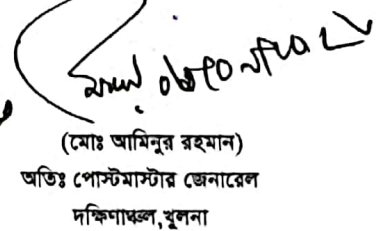 (মোঃ আমিনুর রহমান)
অতিঃ পোস্টমাস্টার জেনারেল
দক্ষিণাঞ্চল,খুলনা